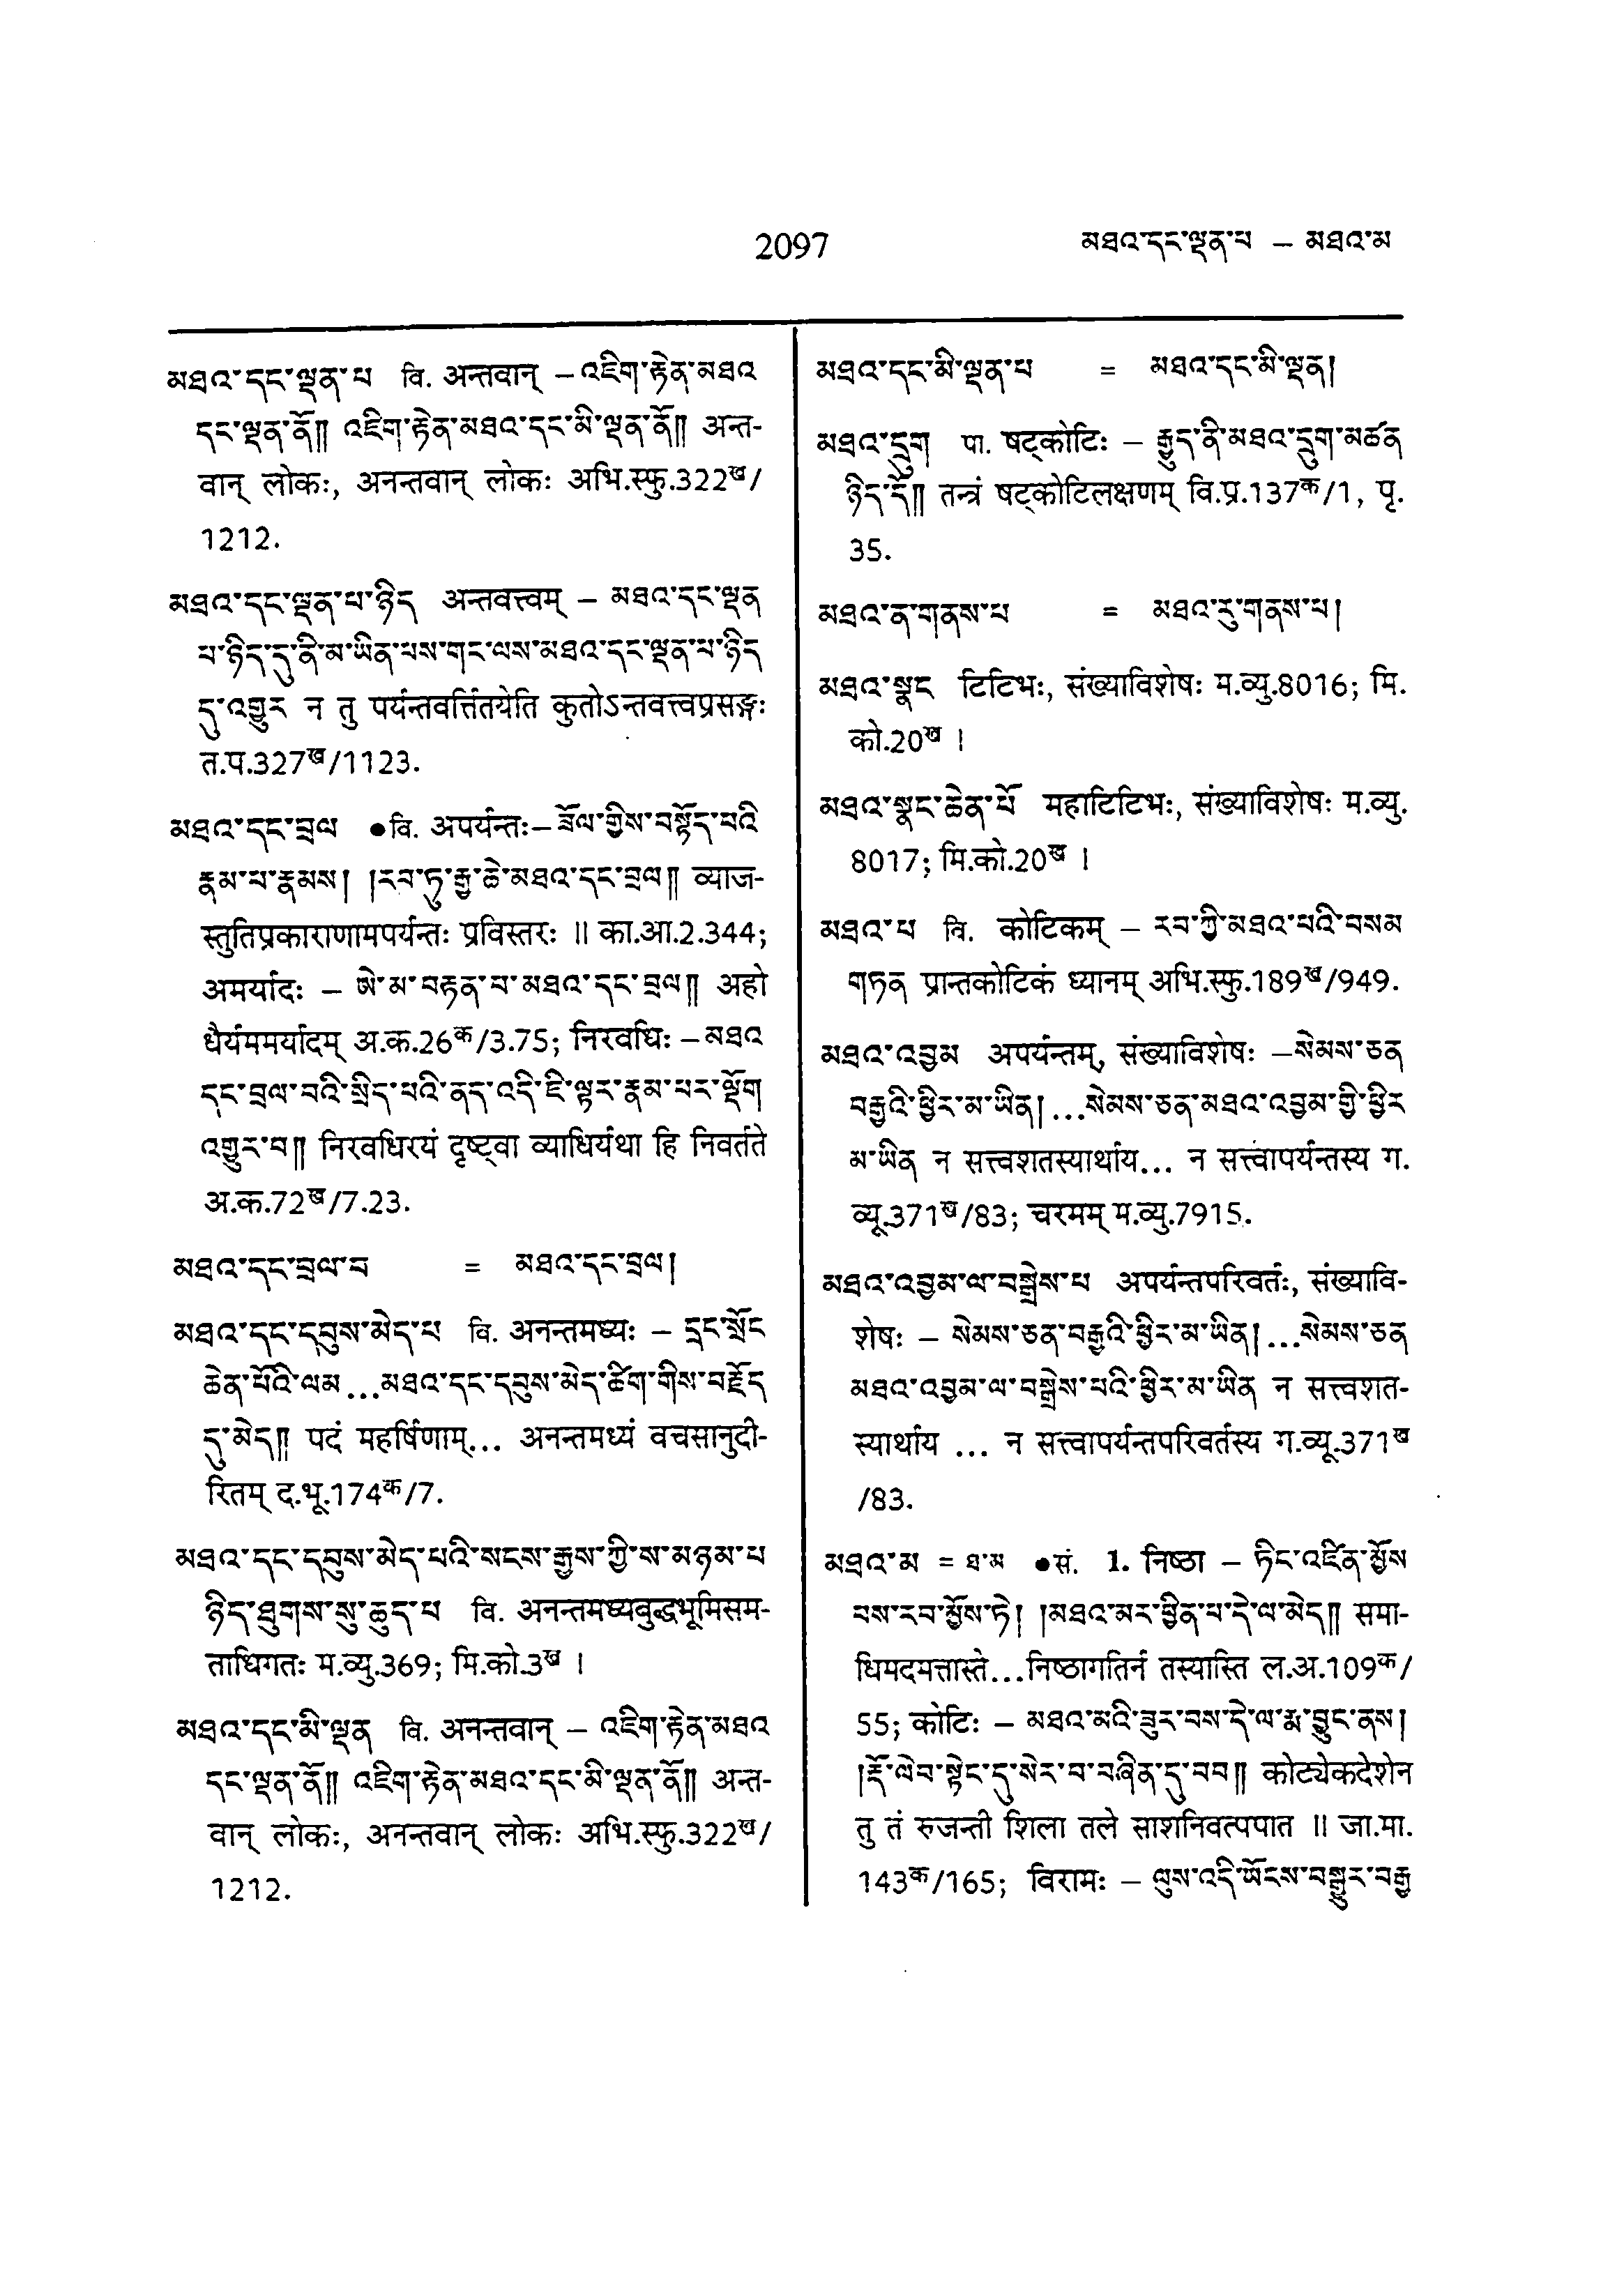 2097
མཐའ་དང་ལྡན་པ – མཐའ་མ
མཐའ་དང་ལྡན་པ वि. अन्तवान् – འཇིག་རྟེན་མཐའ
དང་ལྡན་ནོ༎ འཇིག་རྟེན་མཐའ་དང་མི་ལྡན་ནོ༎ अन्त-
वान् लोकः, अनन्तवान् लोकः अभि.स्फु.322ख/
1212.
མཐའ་དང་ལྡན་པ་ཉིད अन्तवत्त्वम् – མཐའ་དང་ལྡན
པ་ཉིད་དུ་ནི་མ་ཡིན་པས་གང་ལས་མཐའ་དང་ལྡན་པ་ཉིད
དུ་འགྱུར न तु पर्यन्तवर्त्तितयेति कुतोऽन्तवत्त्वप्रसङ्गः
त.प.327ख/1123.
མཐའ་དང་བྲལ ●वि. अपर्यन्तः– ཟོལ་གྱིས་བསྟོད་པའི
རྣམ་པ་རྣམས། །རབ་ཏུ་རྒྱ་ཆེ་མཐའ་དང་བྲལ༎ व्याज-
स्तुतिप्रकाराणामपर्यन्तः प्रविस्तरः ॥ का.आ.2.344;
अमर्यादः – ཨེ་མ་བརྟན་བ་མཐའ་དང་བྲལ༎ अहो
धैर्यममर्यादम् अ.क.26क/3.75; निरवधिः – མཐའ
དང་བྲལ་བའི་སྲིད་པའི་ནད་འདི་ཇི་ལྟར་རྣམ་པར་ལྡོག
འགྱུར་བ༎ निरवधिरयं दृष्ट्वा व्याधिर्यथा हि निवर्तते
अ.क.72ख/7.23.
མཐའ་དང་བྲལ་བ = མཐའ་དང་བྲལ།
མཐའ་དང་དབུས་མེད་པ वि. अनन्तमध्यः – དྲང་སྲོང
ཆེན་པོའི་ལམ...མཐའ་དང་དབུས་མེད་ཚིག་གིས་བརྗོད
དུ་མེད༎ पदं महर्षिणाम्... अनन्तमध्यं वचसानुदी-
रितम् द.भू.174क/7.
མཐའ་དང་དབུས་མེད་པའི་སངས་རྒྱས་ཀྱི་ས་མཉམ་པ
ཉིད་ཐུགས་སུ་ཆུད་པ वि. अनन्तमध्यबुद्धभूमिसम-
ताधिगतः म.व्यु.369; मि.को.3ख ।
མཐའ་དང་མི་ལྡན वि. अनन्तवान् – འཇིག་རྟེན་མཐའ
དང་ལྡན་ནོ༎ འཇིག་རྟེན་མཐའ་དང་མི་ལྡན་ནོ༎ अन्त-
वान् लोकः, अनन्तवान् लोकः अभि.स्फु.322ख/
1212.
མཐའ་དང་མི་ལྡན་པ = མཐའ་དང་མི་ལྡན།
མཐའ་དྲུག पा. षट्कोटिः – རྒྱུད་ནི་མཐའ་དྲུག་མཚན
ཉིད་དོ༎ तन्त्रं षट्कोटिलक्षणम् वि.प्र.137क/1, पृ.
35.
མཐའ་ན་གནས་པ = མཐའ་རུ་གནས་པ།
མཐའ་སྣང टिटिभः, संख्याविशेषः म.व्यु.8016; मि.
को.20ख ।
མཐའ་སྣང་ཆེན་པོ महाटिटिभः, संख्याविशेषः म.व्यु.
8017; मि.को.20ख ।
མཐའ་པ वि. कोटिकम् – རབ་ཀྱི་མཐའ་པའི་བསམ
གཏན प्रान्तकोटिकं ध्यानम् अभि.स्फु.189ख/949.
མཐའ་འབྱམ अपर्यन्तम्, संख्याविशेषः – སེམས་ཅན
བརྒྱའི་ཕྱིར་མ་ཡིན།...སེམས་ཅན་མཐའ་འབྱམ་གྱི་ཕྱིར
མ་ཡིན न सत्त्वशतस्यार्थाय... न सत्त्वापर्यन्तस्य ग.
व्यू.371ख/83; चरमम् म.व्यु.7915.
མཐའ་འབྱམ་ལ་བསྒྲེས་པ अपर्यन्तपरिवर्तः, संख्यावि-
शेषः – སེམས་ཅན་བརྒྱའི་ཕྱིར་མ་ཡིན།...སེམས་ཅན
མཐའ་འབྱམ་ལ་བསྒྲེས་པའི་ཕྱིར་མ་ཡིན न सत्त्वशत-
स्यार्थाय ... न सत्त्वापर्यन्तपरिवर्तस्य ग.व्यू.371ख
/83.
མཐའ་མ = ཐ་མ ●सं. 1. निष्ठा – ཏིང་འཛིན་མྱོས
བས་རབ་མྱོས་ཏེ། །མཐའ་མར་ཕྱིན་པ་དེ་ལ་མེད༎ समा-
धिमदमत्तास्ते...निष्ठागतिर्न तस्यास्ति ल.अ.109क/
55; कोटिः – མཐའ་མའི་ཟུར་བས་དེ་ལ་རྨ་བྱུང་ནས།
།རྡོ་ལེབ་སྟེང་དུ་སེར་བ་བཞིན་དུ་བབ༎ कोट्येकदेशेन
तु तं रुजन्ती शिला तले साशनिवत्पपात ॥ जा.मा.
143क/165; विरामः – ལུས་འདི་ཡོངས་བསྒྱུར་བརྒྱ